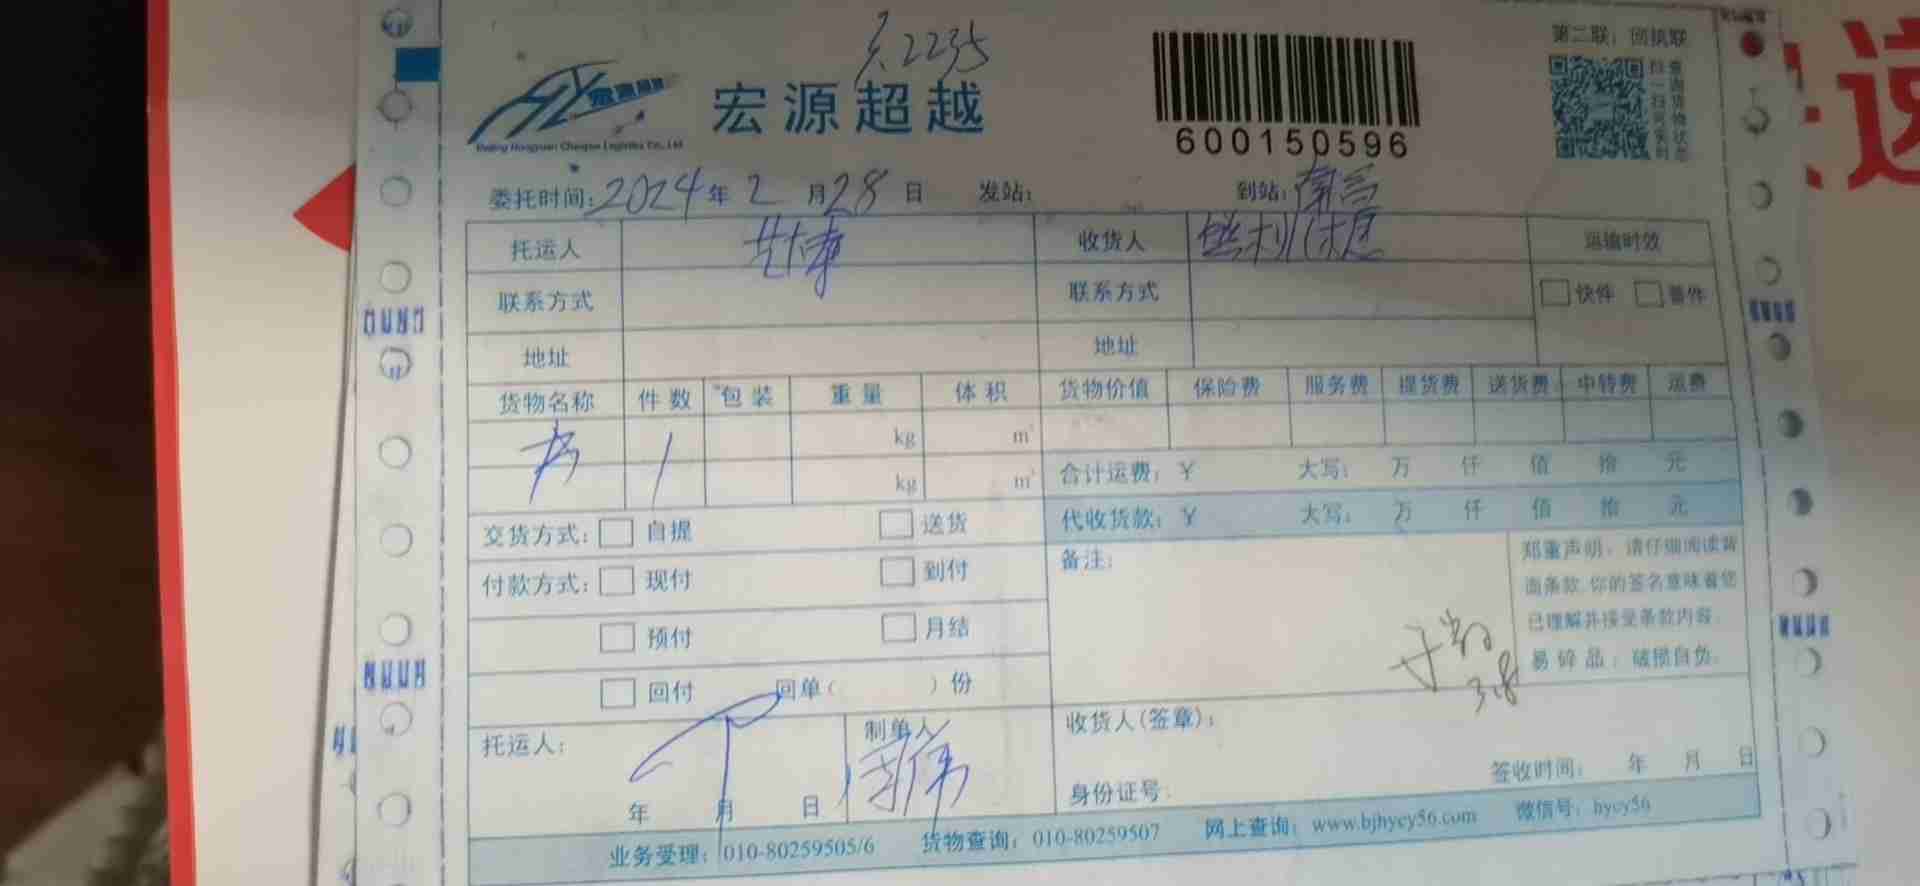 2235
第二联：回执联
宏源超越
Beijing Hongyuan Chaoyue Logistics Co., Ltd
600150596
扫一扫可实时
查询货物状态
委托时间：2024年2月28日 发站： 到站：南昌
托运人 收货人 运输时效
联系方式 联系方式 快件 普件
地址 地址
货物名称 件数 包装 重量 体积 货物价值 保险费 服务费 提货费 送货费 中转费 运费
书 1 kg m³
kg m³
合计运费：¥ 大写： 万 仟 佰 拾 元
代收货款：¥ 大写： 万 仟 佰 拾 元
交货方式： 自提 送货
付款方式： 现付 到付
预付 月结
回付 回单（ ）份
备注：
郑重声明：请仔细阅读背
面条款.你的签名意味着您
已理解并接受条款内容.
易碎品：破损自负.
3.8
托运人： 年 月 日
制单人
收货人(签章)：
身份证号： 签收时间： 年 月 日
业务受理：010-80259505/6 货物查询：010-80259507 网上查询：www.bjhycy56.com 微信号：hycy56